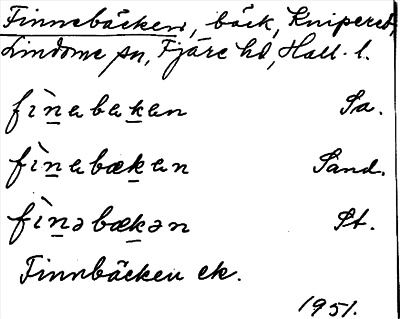 Finnebäcken, bäck, Knipered,
Lindome sn, Fjäre hd, Hall. l.
fìn̲ebak̲en Sa.
fìn̲ebæk̲en Sand.
fìn̲əbæk̲ən St.
Finnbäcken ek.
1951.